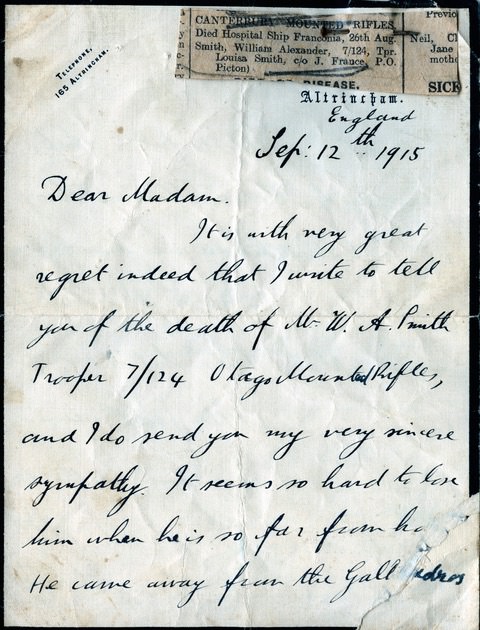 CANTERBURY MOUNTED RIFLES.
Died Hospital Ship Franconia, 26th Aug.
Smith, William Alexander, 7/124, Tpr.
Louisa Smith, c/o J. France, P.O.
Picton)
DISEASE.
Previo
Neil, Cl
Jane
moth
SICK
TELEPHONE,
165 ALTRINCHAM.
Altrincham.
England
Sep: 12th 1915
Dear Madam.
It is with very great
regret indeed that I write to tell
you of the death of Mr. W. A. Smith
Trooper 7/124 Otago Mounted Rifles,
and I do send you my very sincere
sympathy. It seems so hard to lose
him when he is so far from ho
He came away from the Gall